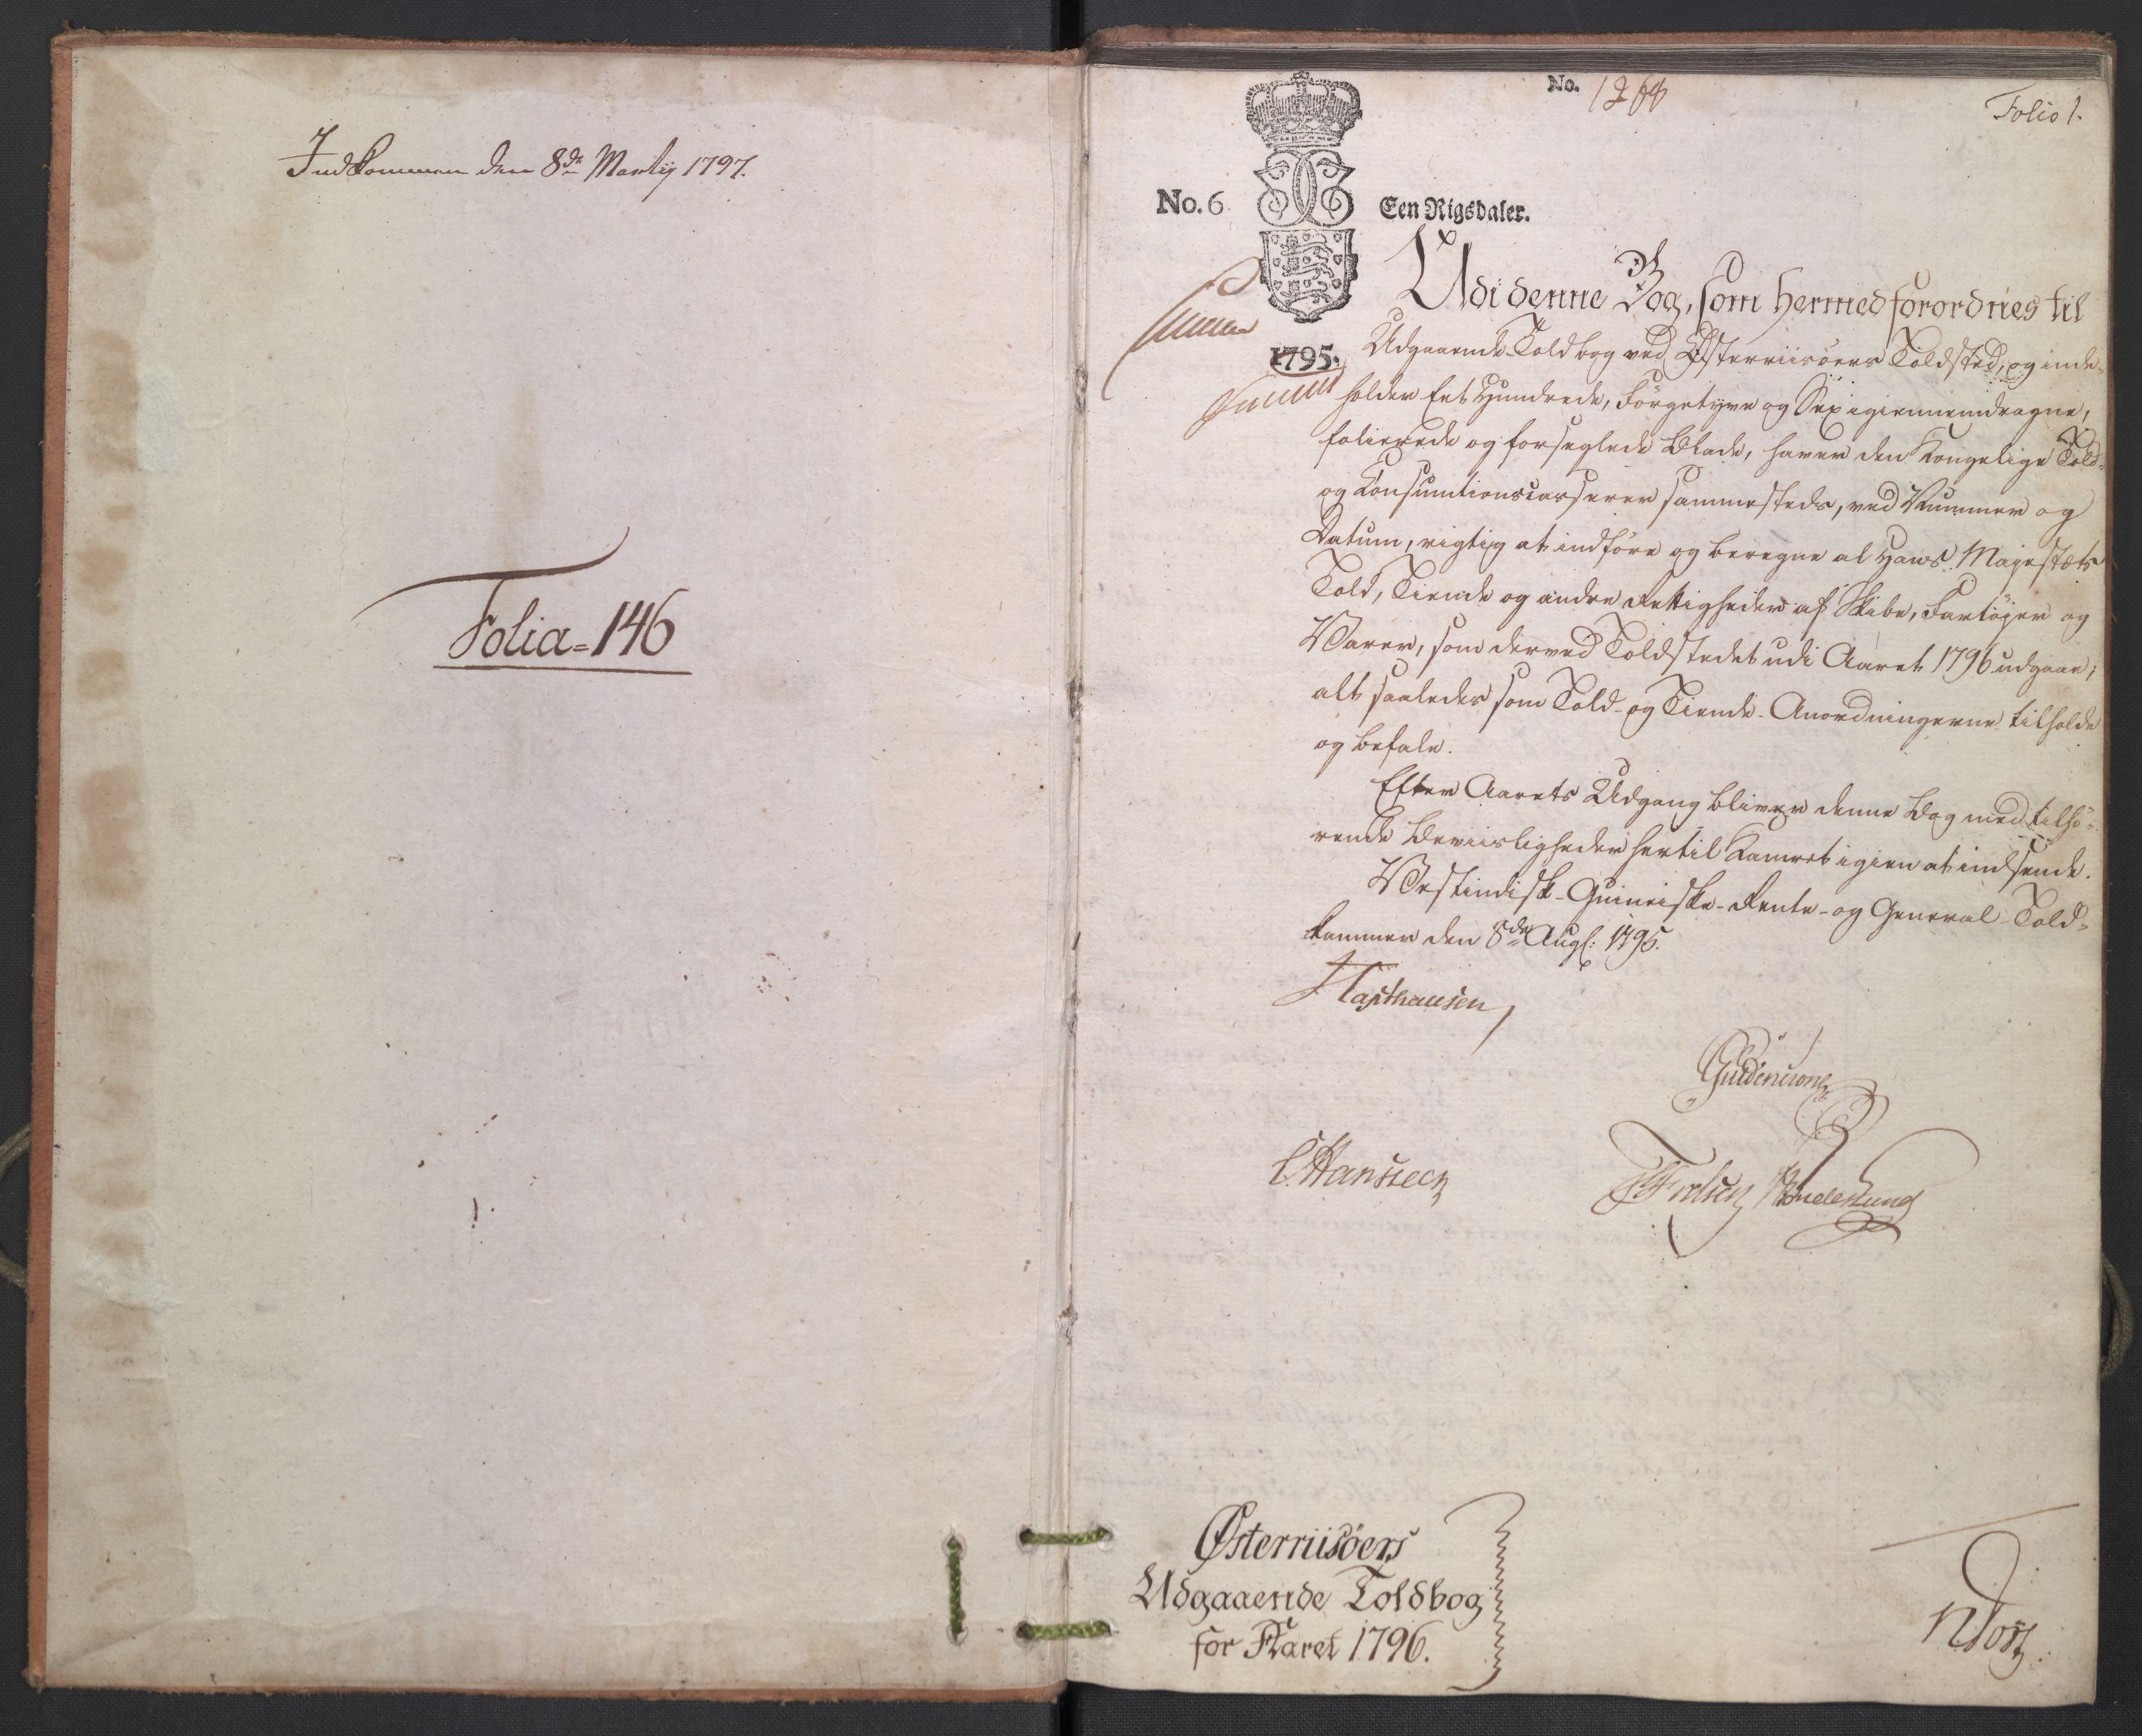 Indkommen den 8de Martij 1797.
Folia=146
No. 1268
Folio 1.
No. 6
Een Rigsdaler.
1795.
Udi denne Bog, som hermed forordnes til
Udgaaende Toldbog ved Østerriisøers Toldsted, og inde-
holder Eet Hundrede, Førgetyve og Sex igiennemdragne,
folierede og forseglede Blade, haver den Kongelige Told-
og Consumtionscasserer sammesteds, ved Nummer og
Datum, rigtig at indføre og beregne al Hans Majestæts
Told, Tiende og andre Rettigheder af Skibe, Fartøjer og
Varer, som derved Toldstedet udi Aaret 1796 udgaae;
alt saaledes som Told- og Tiende-Anordningerne tilholde
og befale.
Efter Aarets Udgang bliver denne Bog med tilhø-
rende Beviisligheder hertil Kamret igien at indsende.
Vestindisk-Guineiske-Rente- og General-Told-
kammer den 8de Augs: 1795.
Haxthausen
Güldencrone
CHanssen
Østerriisøers
Udgaaende Toldbog
for Aaret 1796.